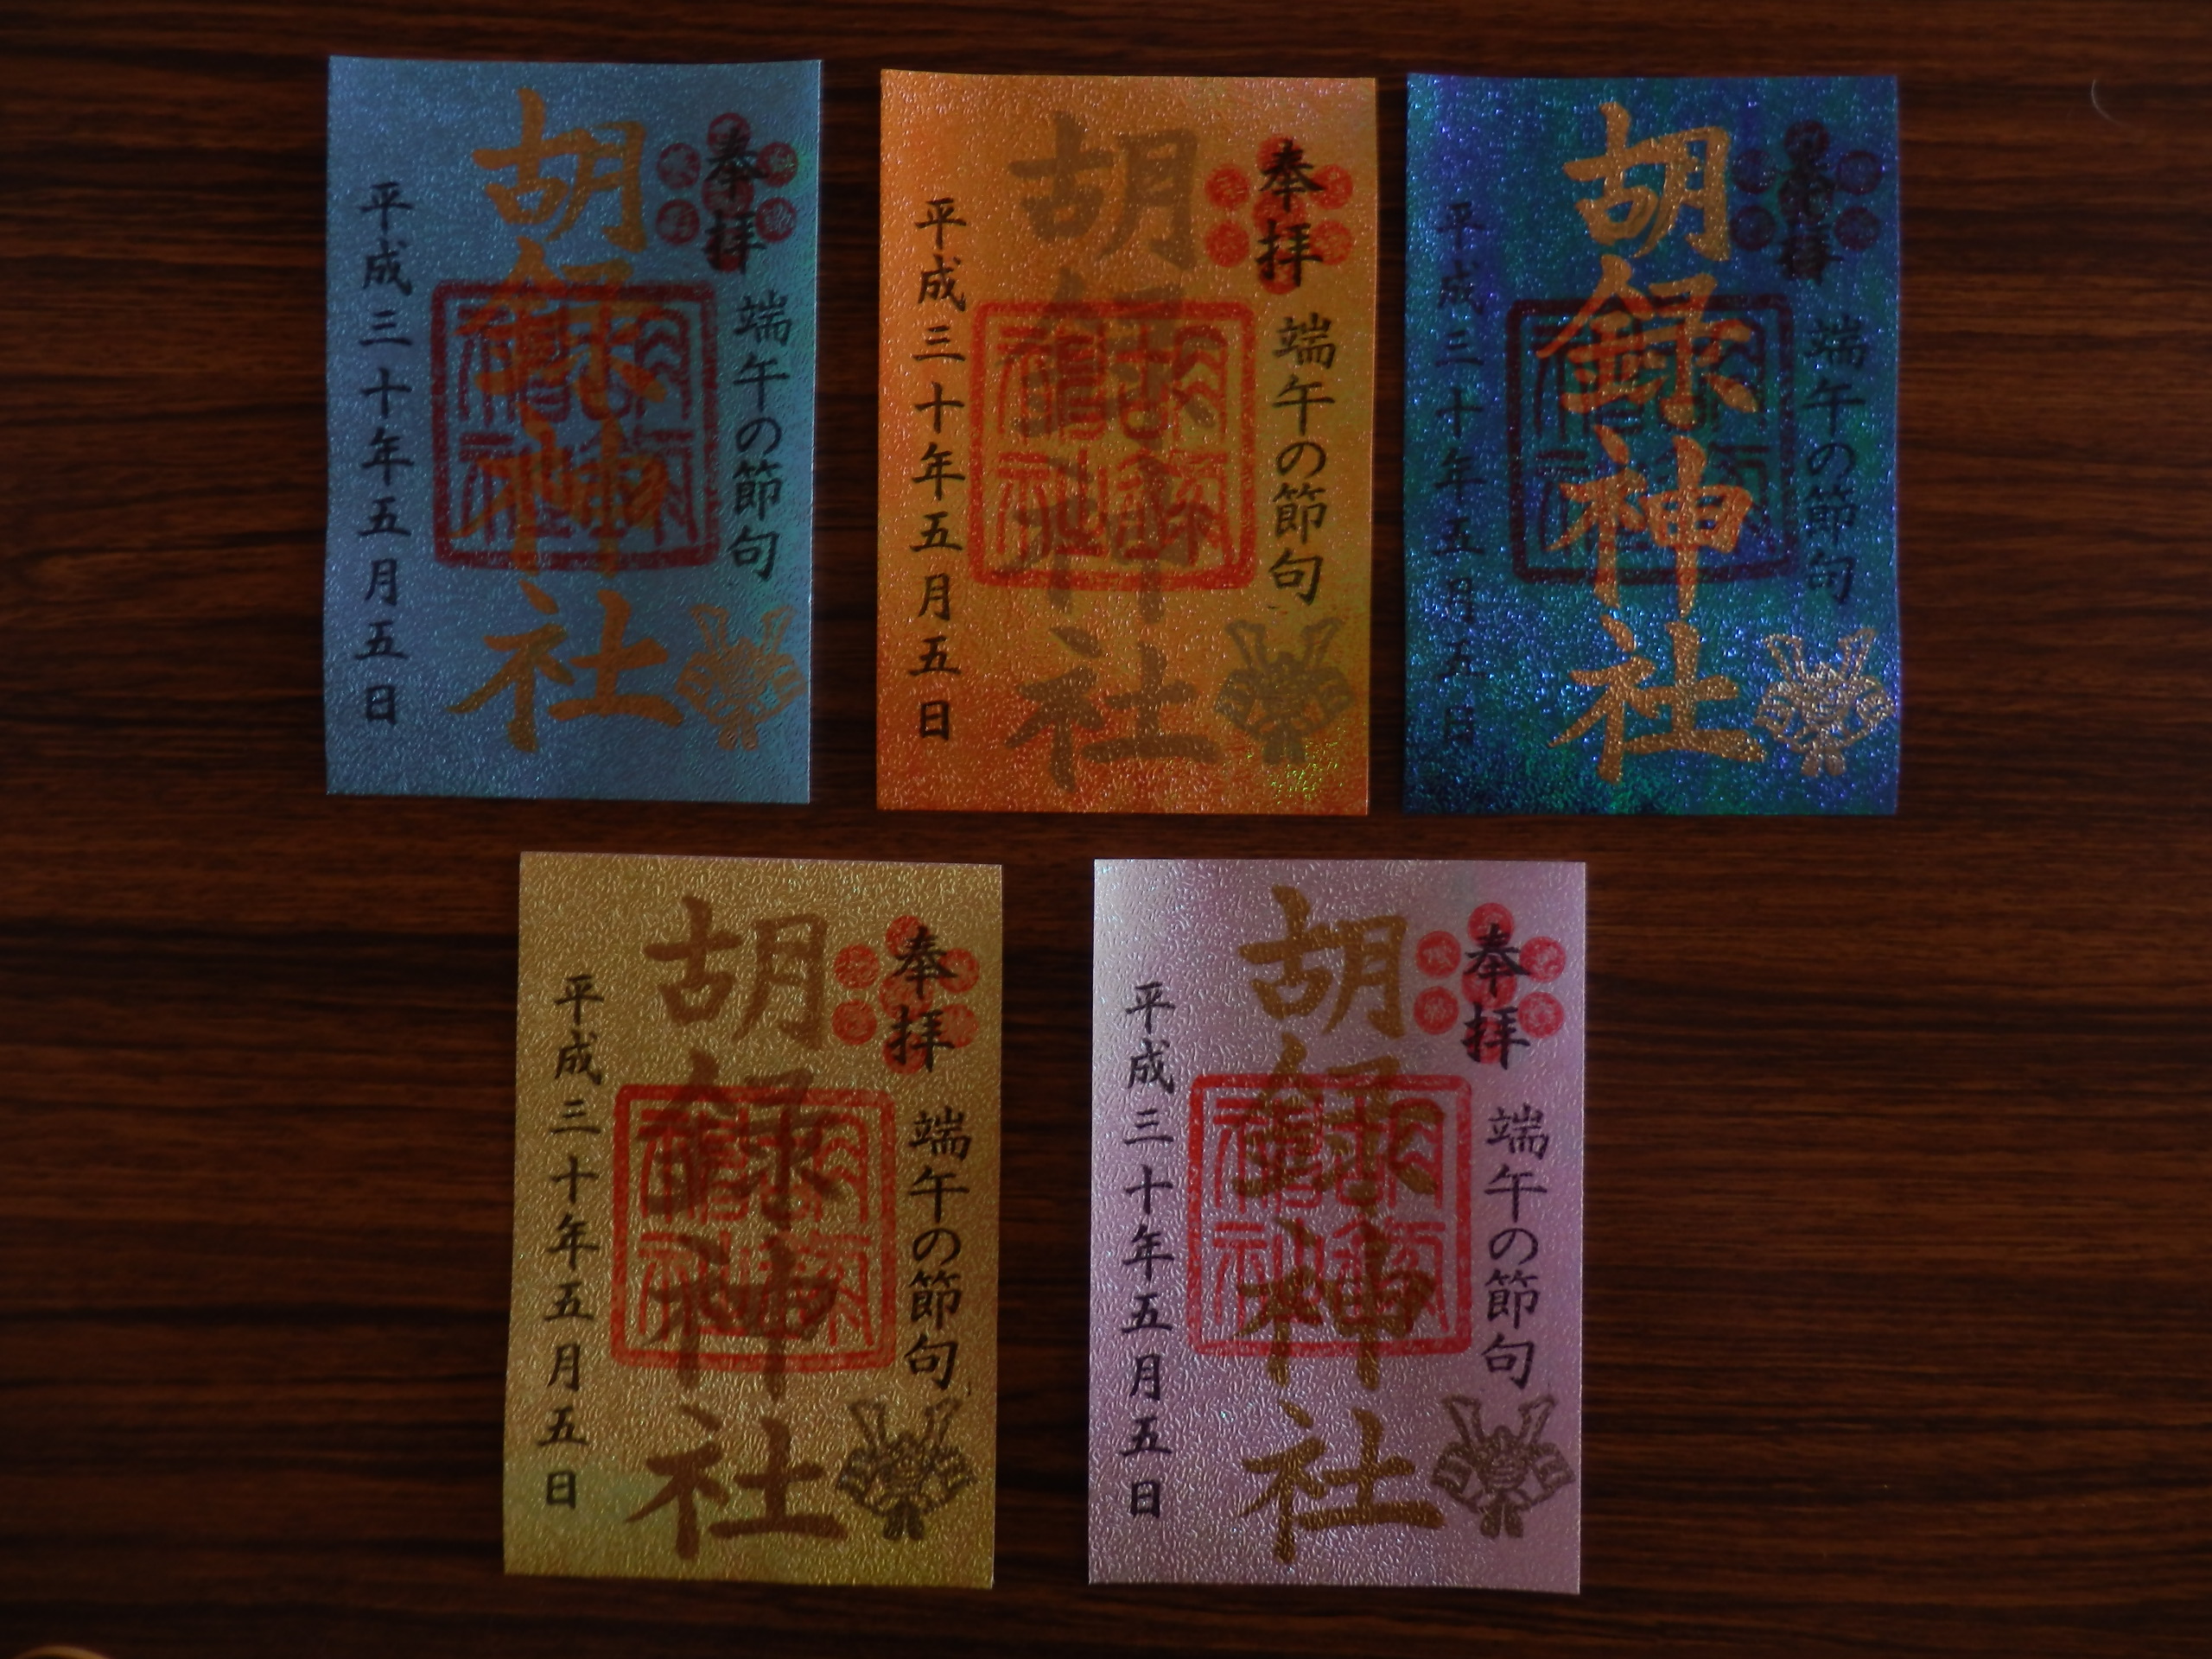 奉拝
端午の節句
胡録神社
平成三十年五月五日
奉拝
端午の節句
胡録神社
平成三十年五月五日
奉拝
端午の節句
胡録神社
平成三十年五月五日
奉拝
端午の節句
胡録神社
平成三十年五月五日
奉拝
端午の節句
胡録神社
平成三十年五月五日